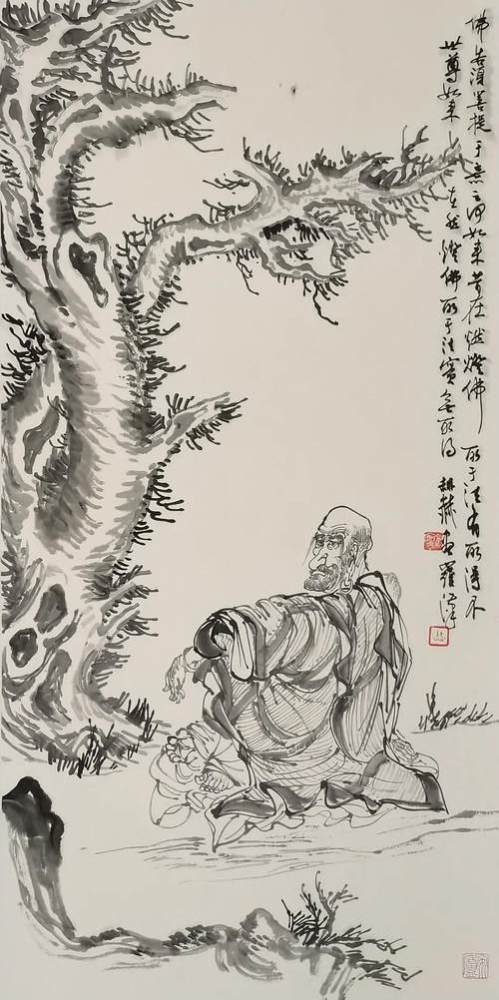 佛告湏菩提于意云何如来昔在燃燈佛所于法有所得不
世尊如来在然燈佛所于法實無所得
羅漢